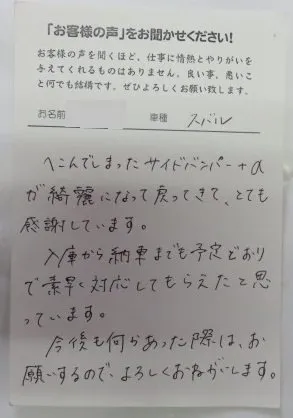 「お客様の声」をお聞かせください!
お客様の声を聞くほど、仕事に情熱とやりがいを
与えてくれるものはありません。良い事、悪いこ
と何でも結構です。ぜひよろしくお願い致します。
お名前 車種 スバル
へこんでしまったサイドバンパー+α
が綺麗になって戻ってきて、とても
感謝しています。
入庫から納車までも予定どおり
で素早く対応してもらえたと思
っています。
今後も何かあった際は、お
願いするので、よろしくおねがいします。